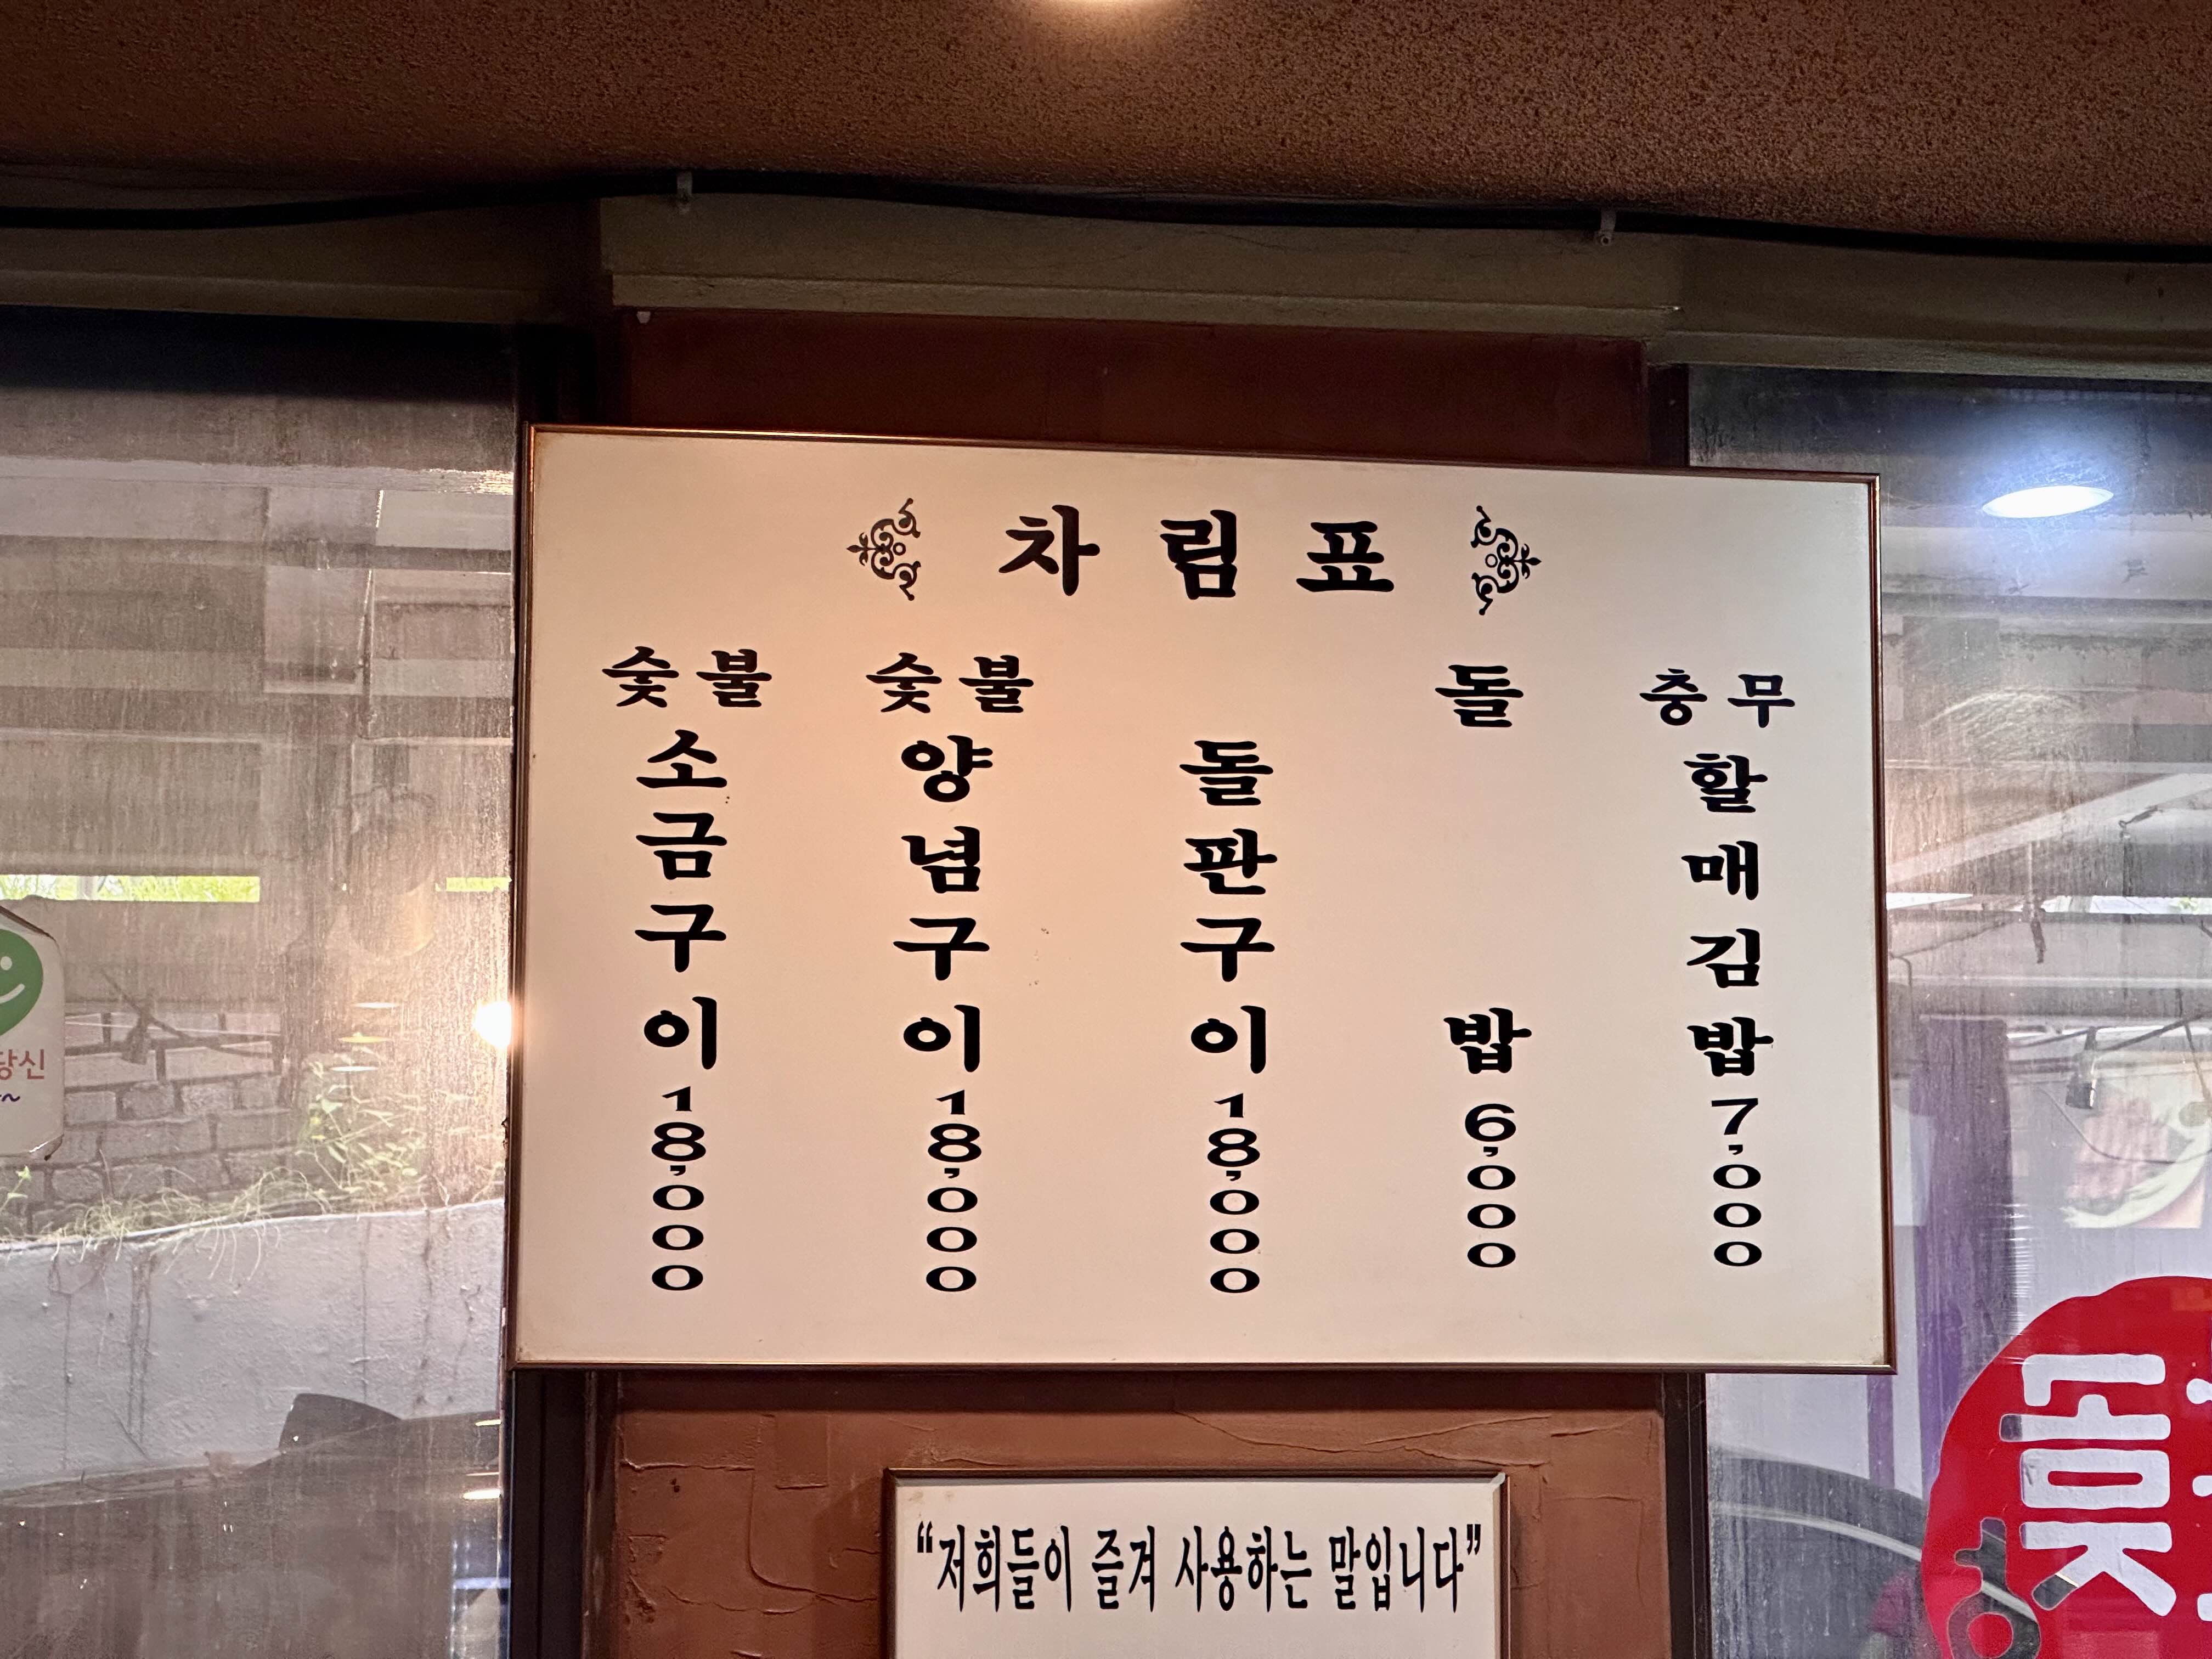 차림표
숯불
소금구이
18,000
숯불
양념구이
18,000
돌판구이
18,000
돌밥
6,000
충무
할매김밥
7,000
"저희들이 즐겨 사용하는 말입니다"
당신